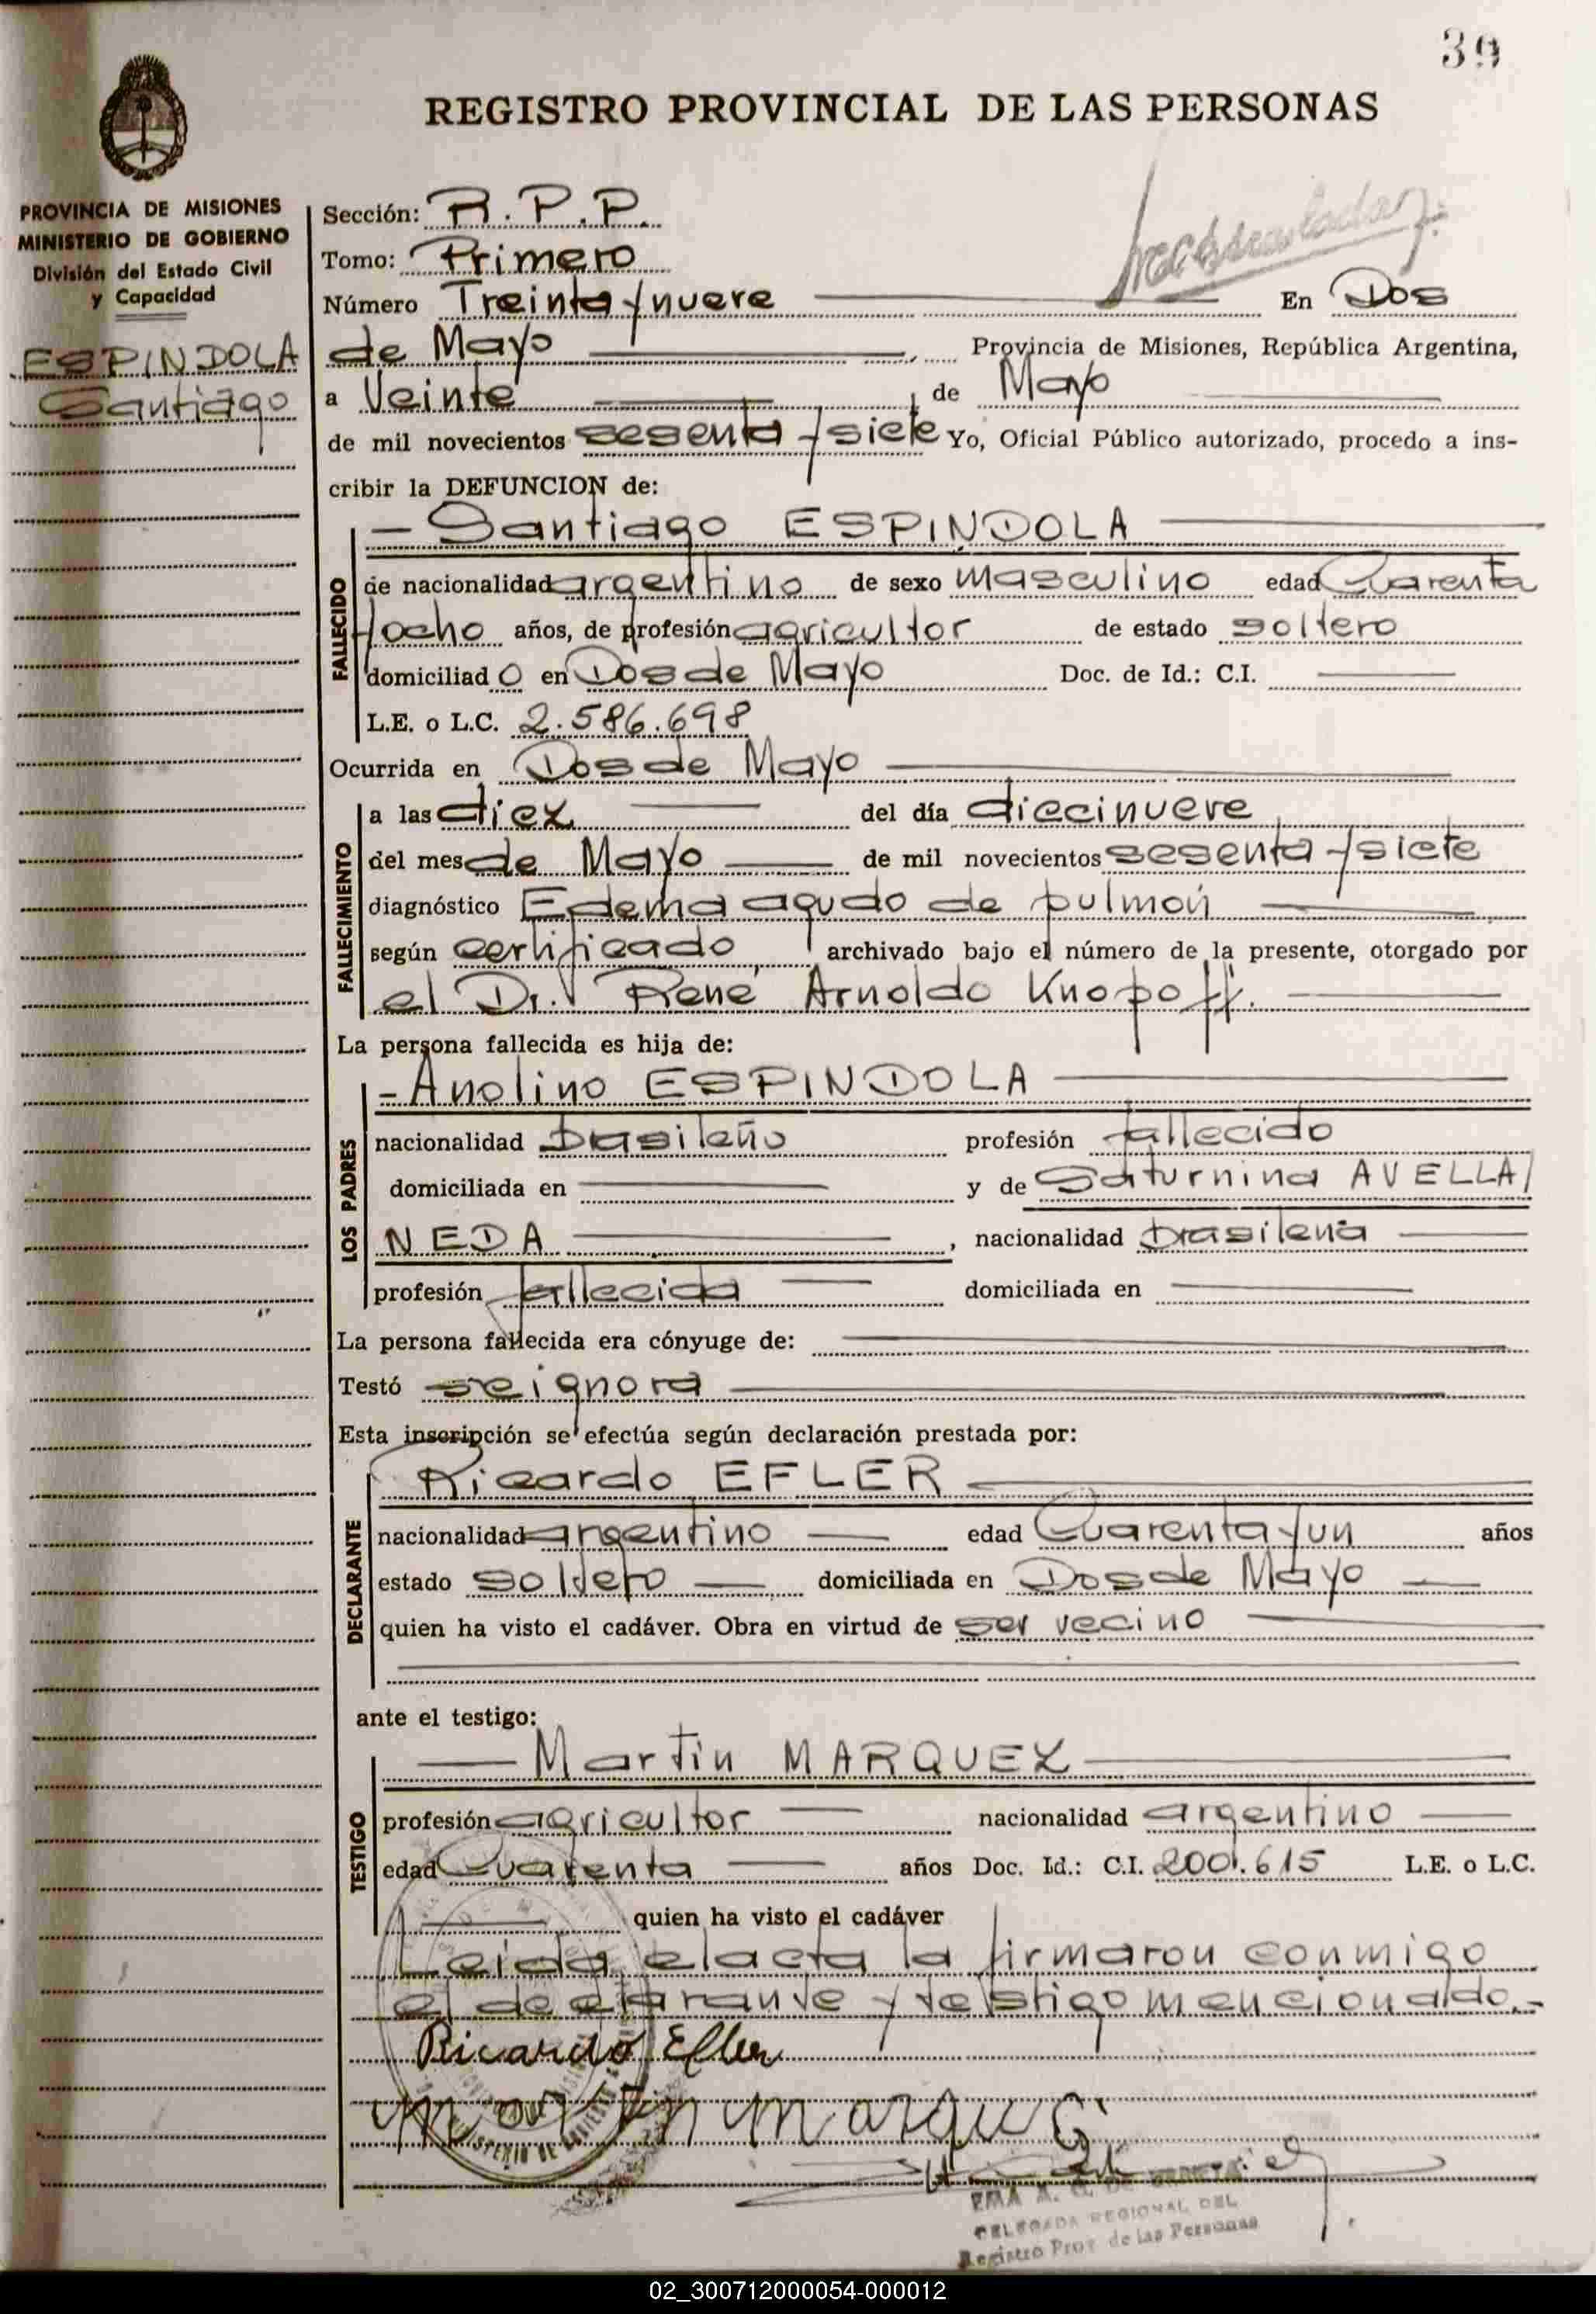 39
REGISTRO PROVINCIAL DE LAS PERSONAS
PROVINCIA DE MISIONES
MINISTERIO DE GOBIERNO
División del Estado Civil
y Capacidad
ESPINDOLA
Santiago
Sección: R.P.P.
Tomo: Primero
Número Treinta y nueve En Dos
de Mayo, Provincia de Misiones, República Argentina,
a Veinte, de Mayo
de mil novecientos sesenta y siete Yo, Oficial Público autorizado, procedo a ins-
cribir la DEFUNCION de:
FALLECIDO
- Santiago ESPINDOLA
de nacionalidad argentino de sexo masculino edad Cuarenta
y ocho años, de profesión agricultor de estado soltero
domiciliad o en Dos de Mayo Doc. de Id.: C.I.
L.E. o L.C. 2.586.698
Ocurrida en Dos de Mayo
FALLECIMIENTO
a las diez del día diecinueve
del mes de Mayo de mil novecientos sesenta y siete
diagnóstico Edema agudo de pulmón
según certificado, archivado bajo el número de la presente, otorgado por
el Dr. René Arnoldo Knopoff.
La persona fallecida es hija de:
LOS PADRES
- Anolino ESPINDOLA
nacionalidad brasileño profesión fallecido
domiciliada en y de Saturnina AVELLA/
NEDA, nacionalidad brasileña
profesión fallecida domiciliada en
La persona fallecida era cónyuge de:
Testó se ignora
Esta inscripción se efectúa según declaración prestada por:
DECLARANTE
Ricardo EFLER
nacionalidad argentino edad Cuarenta y un años
estado soltero domiciliada en Dos de Mayo
quien ha visto el cadáver. Obra en virtud de ser vecino
ante el testigo:
TESTIGO
Martin MARQUEZ
profesión agricultor nacionalidad argentino
edad Cuarenta años Doc. Id.: C.I. 200.615 L.E. o L.C.
quien ha visto el cadáver
Leida el acta la firmaron conmigo
el declarante y testigo mencionado.-
Ricardo Efler
Martin Marques
DELEGADA REGIONAL DEL
Registro Prov. de las Personas
02_300712000054-000012